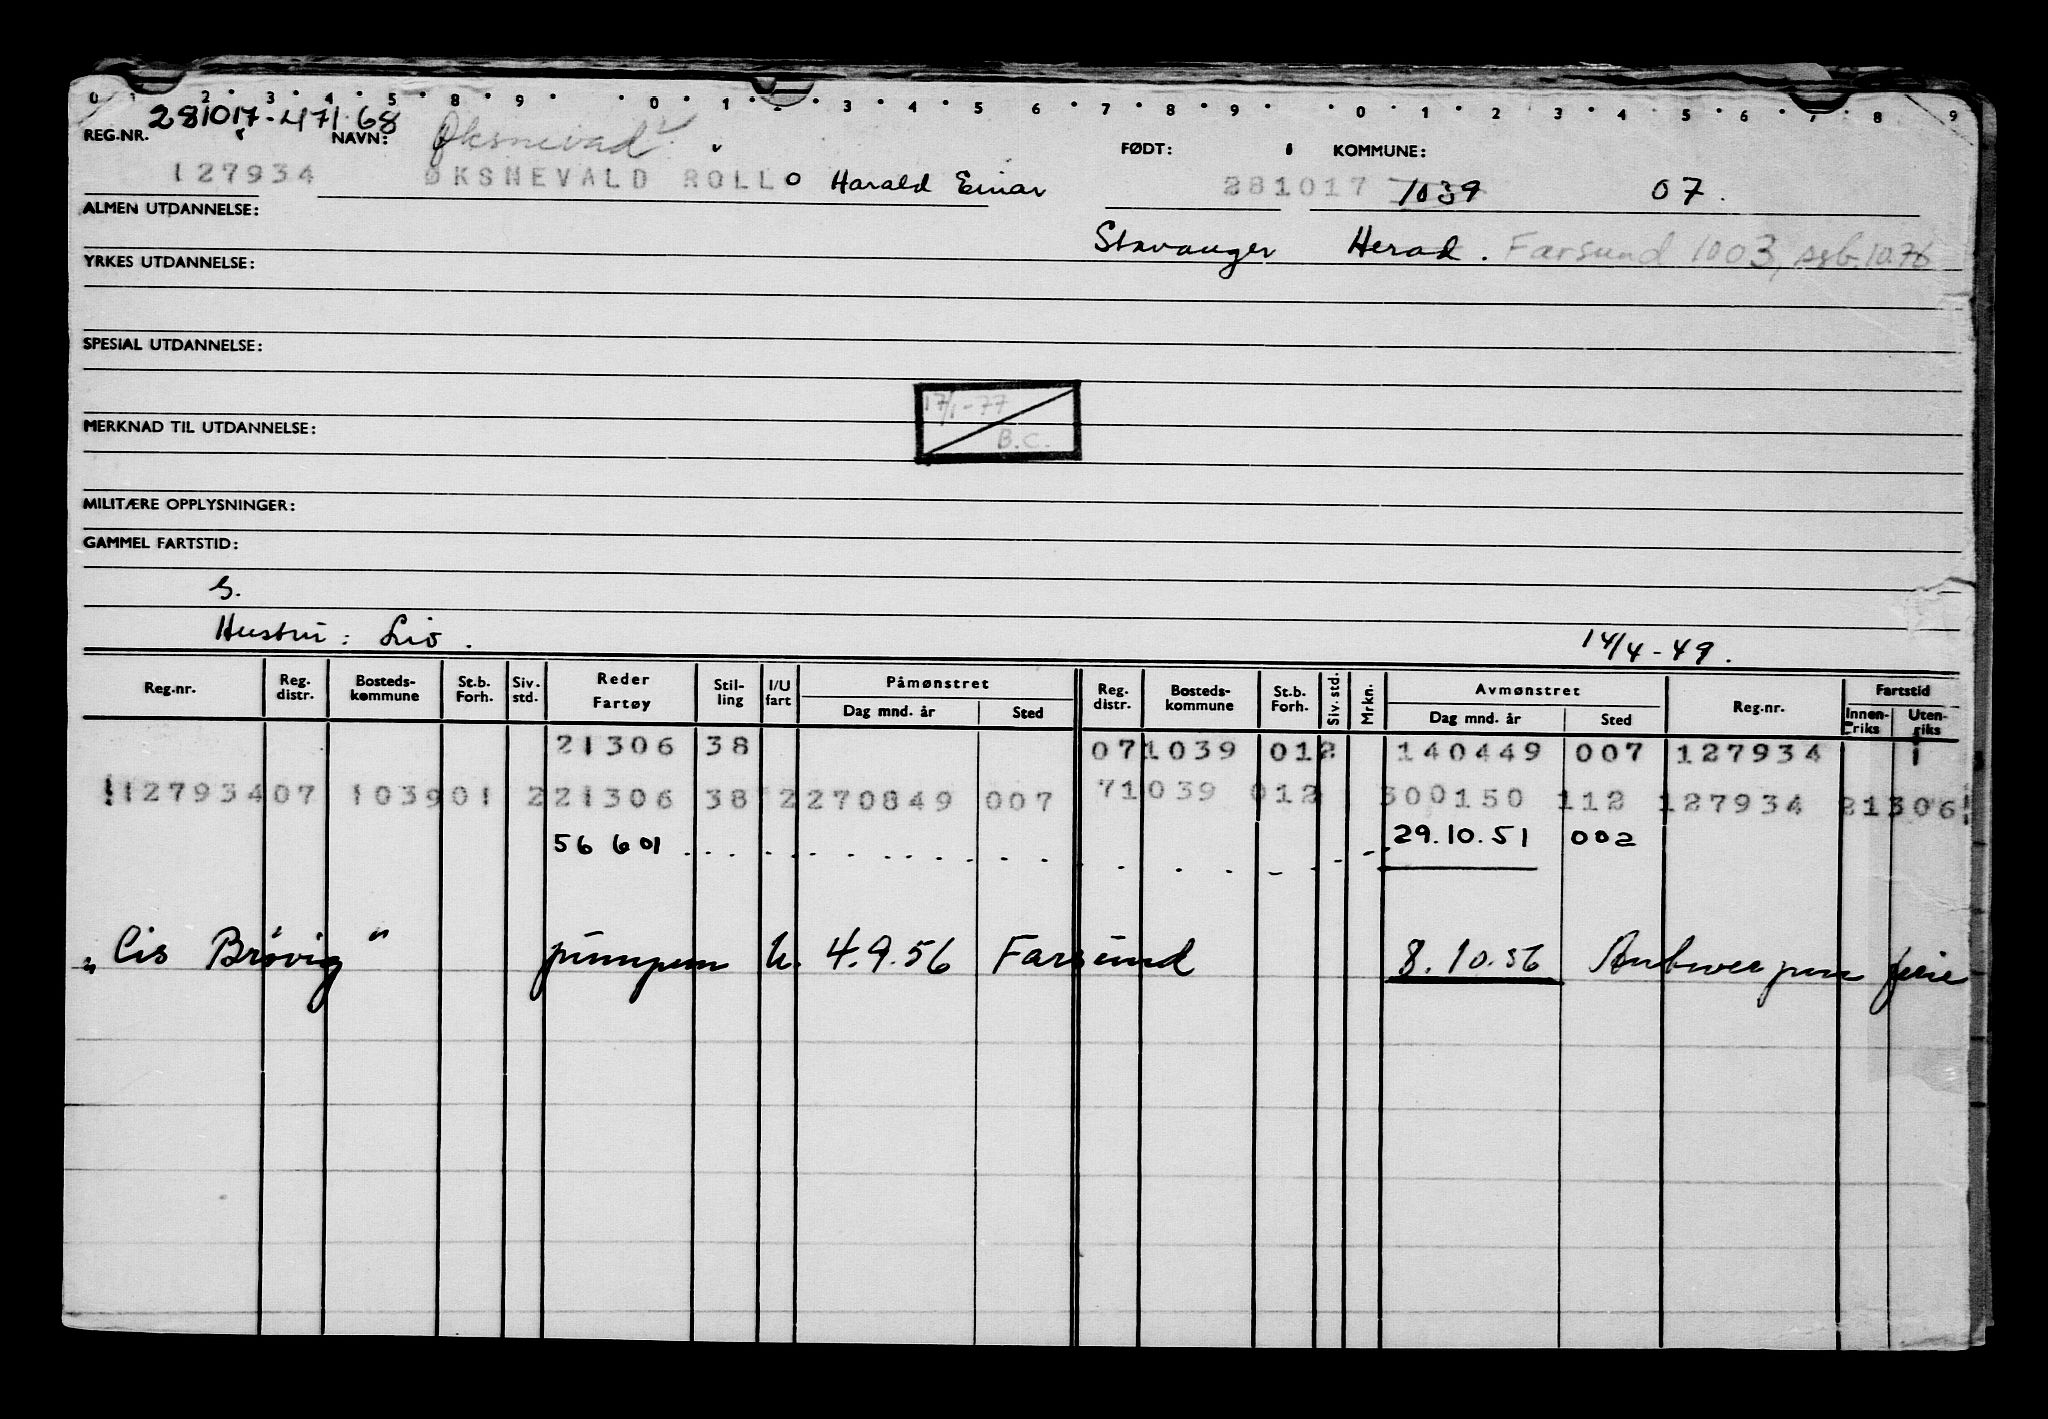 0 1 2 3 4 5 8 9 0 1 2 3 4 5 6 7 8 9 0 1 2 3 4 5 6 7 8 9
281017-47168 Øksnevad
REG.NR. NAVN: FØDT: KOMMUNE:
127934 ØKSNEVALD ROLLO Harald Einar 281017 1039 07.
ALMEN UTDANNELSE:
Stavanger Herad. Farsund 1003, 10.76
YRKES UTDANNELSE:
SPESIAL UTDANNELSE:
17/1-77
B.C.
MERKNAD TIL UTDANNELSE:
MILITÆRE OPPLYSNINGER:
GAMMEL FARTSTID:
S.
Hustru: Liv. 14/4-49.
Reg.nr. Reg. distr. Bosteds-kommune St.b. Forh. Siv. std. Reder Fartøy Stil-ling I/U fart Påmønstret Dag mnd. år Sted Reg. distr. Bosteds-kommune St.b. Forh. Siv. std. Mrkn. Avmønstret Dag mnd. år Sted Reg.nr. Fartstid Innen-riks Uten-riks
21306 38 07 1039 012 140449 007 127934 1
127934 07 1039 01 2 21306 38 2 270849 007 7 1039 012 300150 112 127934 21306
56 601 29.10.51 002
"Cis Brøvig" pumpem U. 4.9.56 Farsund 8.10.56 Antwerpen ferie